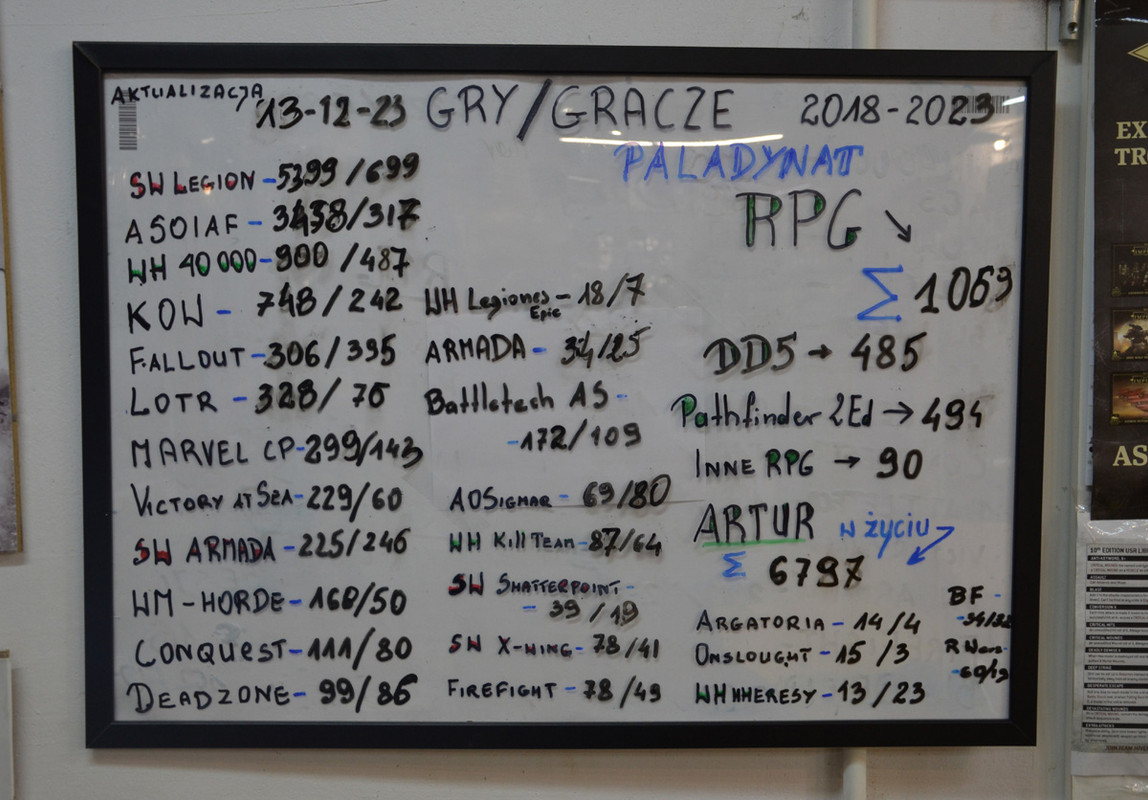 AKTUALIZACJA
13-12-23 GRY/GRACZE 2018-2023
PALADYNAT
SW LEGION - 5399/699
ASOIAF - 3458/317
WH 40 000 - 900/487
KOW - 748/242
FALLOUT - 306/395
LOTR - 328/76
MARVEL CP - 299/143
VICTORY AT SEA - 229/60
SW ARMADA - 225/246
WM-HORDE - 160/50
CONQUEST - 111/80
DEADZONE - 99/86
WH Legiones - 18/7
Epic
ARMADA - 34/25
Battletech AS -
-172/109
AOSIGMAR - 69/80
WH Kill TEAM - 87/64
SW SHATTERPOINT -
- 39/19
SW X-WING - 78/41
FIREFIGHT - 78/49
RPG ↘
Σ 1069
DD5 → 485
Pathfinder 2Ed → 494
INNE RPG → 90
ARTUR w życiu
Σ 6797
ARGATORIA - 14/4
ONSLOUGHT - 15/3
WHHHERESY - 13/23
BF -
R Wars -
- 60/19
EX
TR
AS
10TH EDITION USR